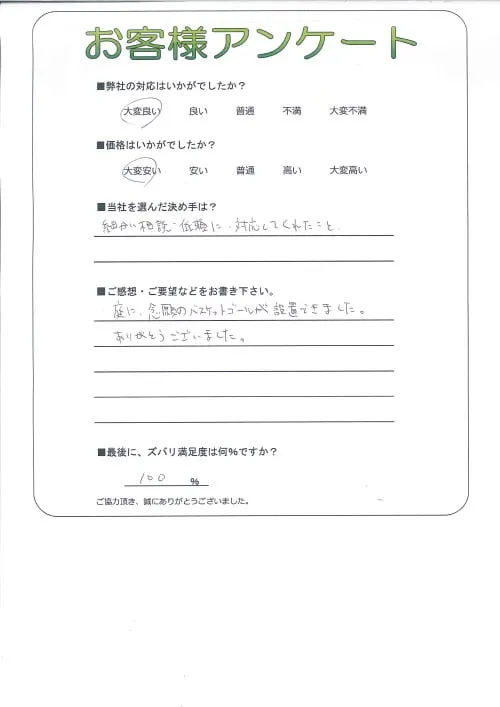 お客様アンケート
■弊社の対応はいかがでしたか?
大変良い 良い 普通 不満 大変不満
■価格はいかがでしたか?
大変安い 安い 普通 高い 大変高い
■当社を選んだ決め手は?
細かい相談 に 対応してくれたこと
■ご感想・ご要望などをお書き下さい。
庭に、念願のバスケットゴールが設置できました。
ありがとうございました。
■最後に、ズバリ満足度は何%ですか?
100 %
ご協力頂き、誠にありがとうございました。